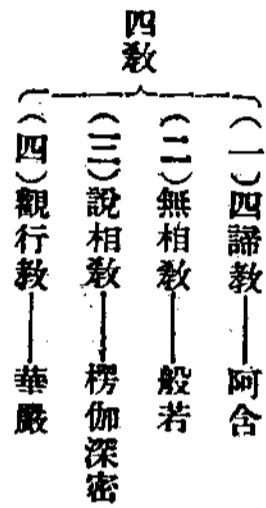 四教
(一)四諦教——阿含
(二)無相教——般若
(三)說相教——楞伽深密
(四)觀行教——華嚴